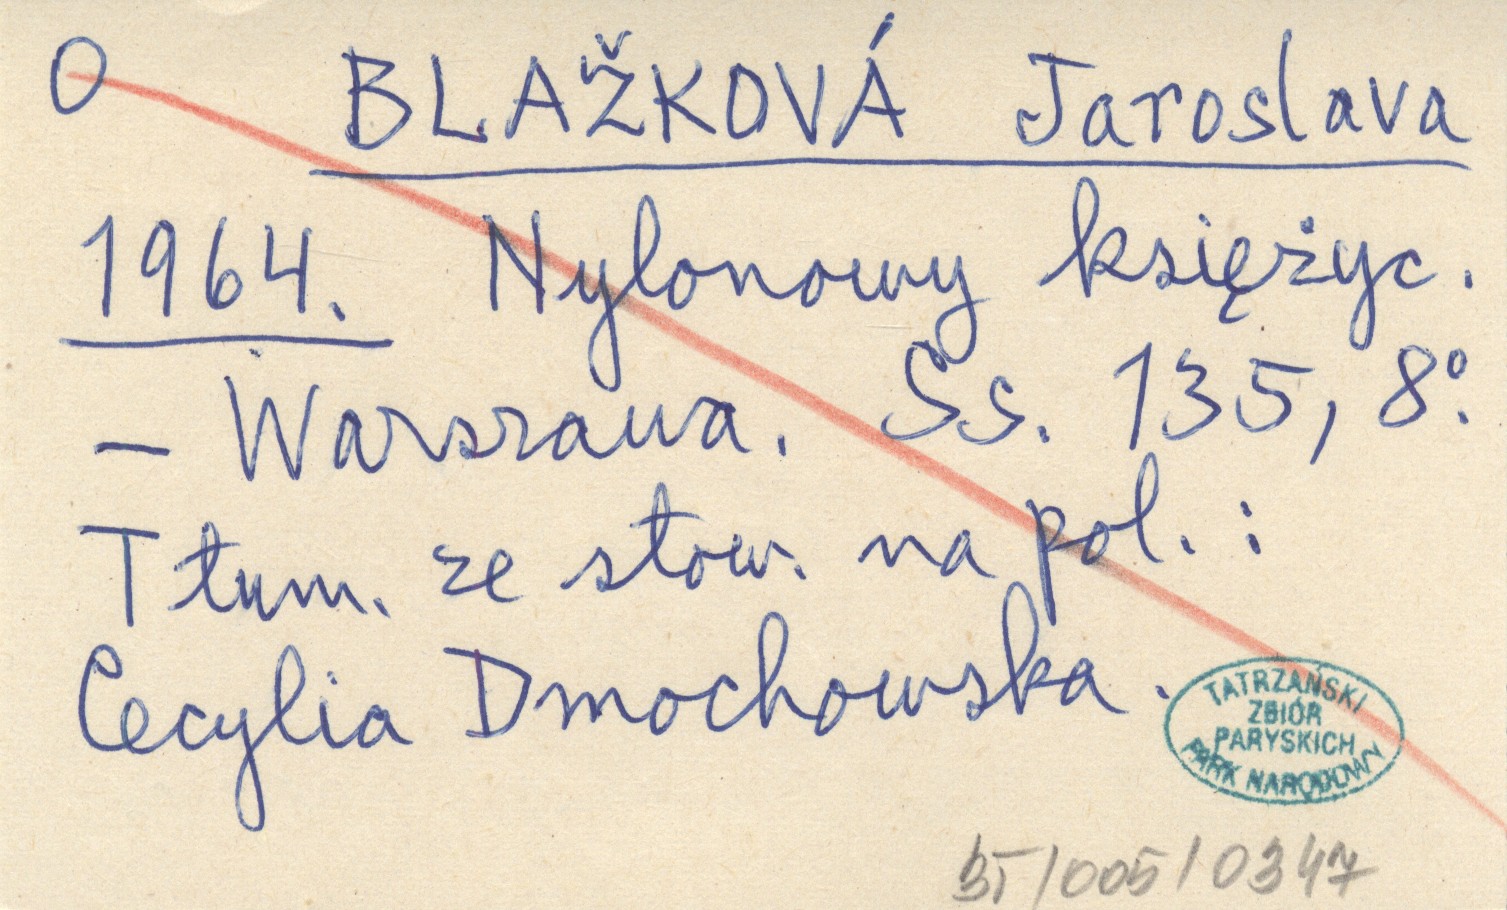 O BLAŽKOVÁ Jaroslava
1964. Nylonowy księżyc.
– Warszawa. Ss. 135, 8°.
Tłum. ze słow. na pol. :
Cecylia Dmochowska.
TATRZAŃSKI
ZBIÓR
PARYSKICH
PARK NARODOWY
/005/0347